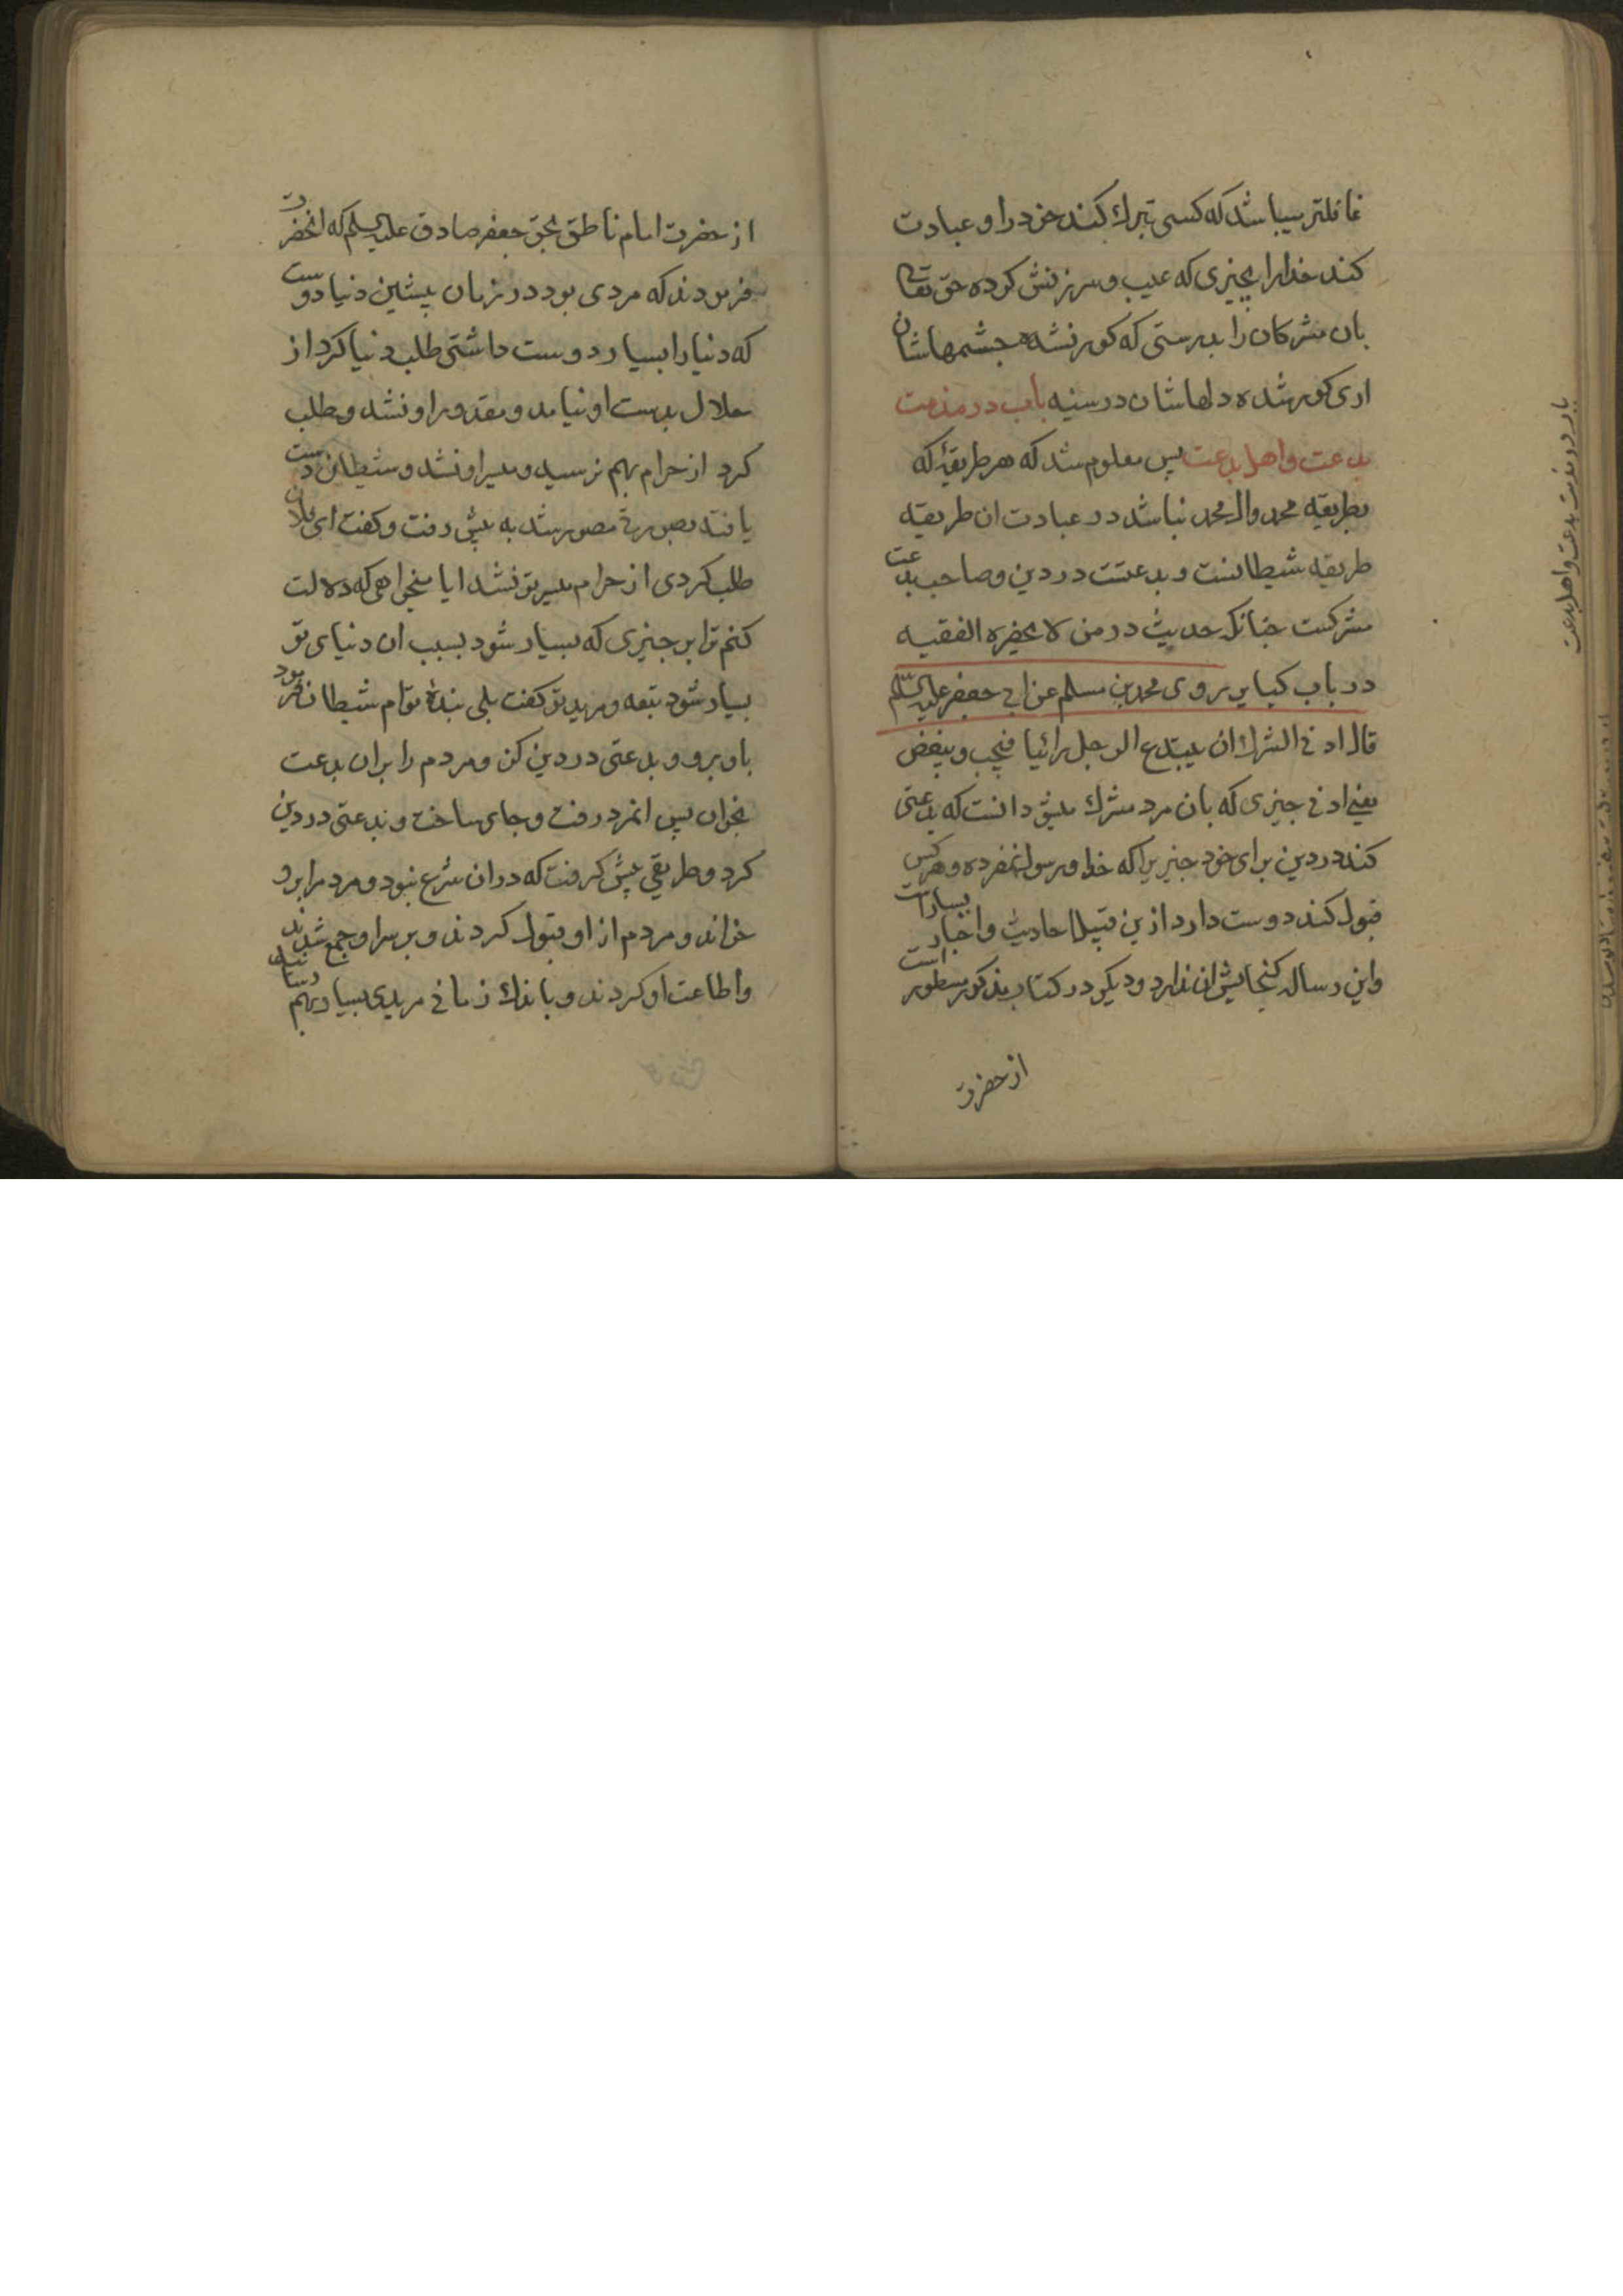 غافلتر میباشد که کسی تبرك کند خود را و عبادت
کند خدا را بچیزی که عیب و سرزنش کرده حق تعالی
بان مشرکان را بدرستی که کور نشده چشمهاشان
اری کور شده دلهاشان در سینه باب در مذمت
بدعت واهل بدعت پس معلوم شد که هر طریقهٔ که
بطریقه محمد وال محمد نباشد در عبادت ان طریقه
طریقه شیطانست و بدعتست در دین و صاحب بدعت
مشرکست چنانکه حدیث در من لا یحضره الفقیه
در باب کبایر روی محمد بن مسلم عن ابی جعفر علیه السلم
قال ادنی الشرك ان یبتدع الرجل رائیا فیحب ویبغض
یعنی ادنی چیزی که بان مرد مشرك میشود انست که بدعتی
کند در دین برای خود چیزیرا که خدا و رسول نفرموده و هر کس
قبول کند دوست دارد ازین قبیل احادیث واخبار بسیارست
واین رساله گنجایش ان ندارد و دیکر در کتاب مذکور مسطور است
از حضرت
باب در مذمت بدعت واهل بدعت
از حضرت امام ناطق بحق جعفر صادق علیه السلم که انحضرت
فرمودند که مردی بود در زمان پیشین دنیا دوست
که دنیا را بسیار دوست داشتی طلب دنیا کرد از
حلال بدست او نیامد و مقدور او نشد و طلب
کرد از حرام بهم نرسید و میسر او نشد و شیطان دست
یافته بصورتی مصور شد به پیش رفت و کفت ای فلان
طلب کردی از حرام میسر تو نشد ایا میخواهی که دلالت
کنم ترا بر چیزی که بسیار شود بسبب ان دنیای تو
بسیار شود تبعه و مرید تو کفت بلی بندهٔ توام شیطان فرمود
باو برو و بدعتی در دین کن و مردم را بران بدعت
بخوان پس انمرد رفت و جای ساخت و بدعتی در دین
کرد و طریقی پیش کرفت که دران شرع نبود و مردم را برو
خواند و مردم از او قبول کردند و بر سر او جمع شدند
واطاعت او کردند و باندك زمانی مریدی بسیار بهم